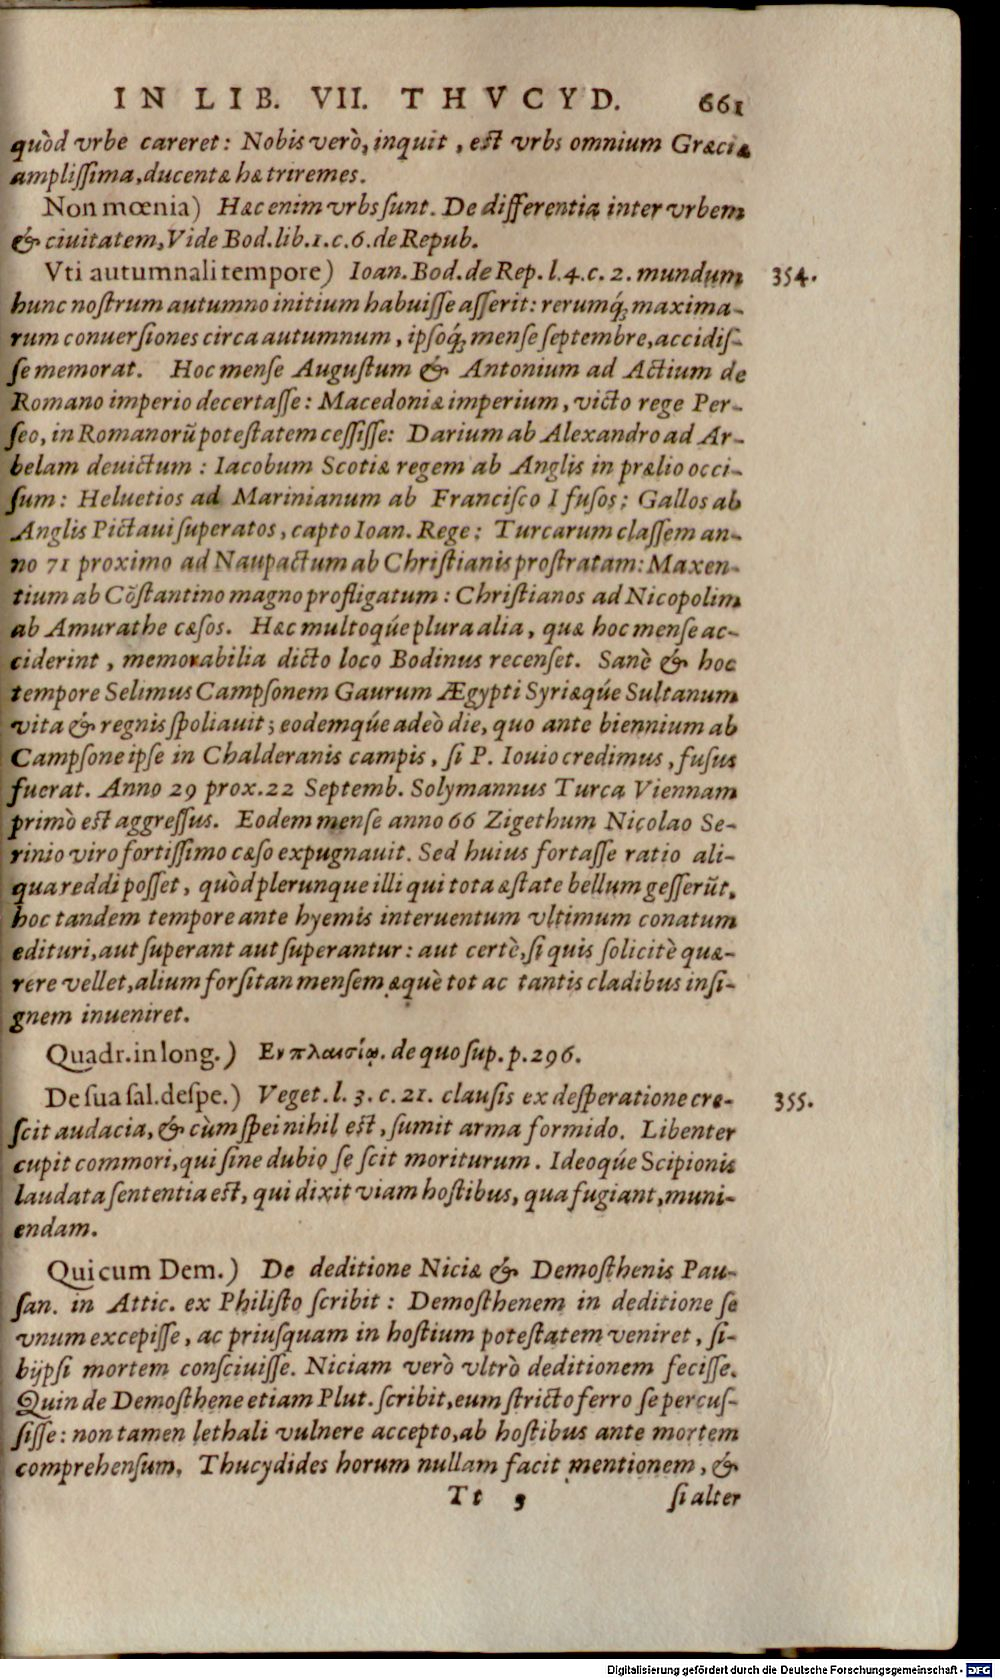 IN LIB. VII. THVCYD. 661
quòd vrbe careret: Nobis verò, inquit, est vrbs omnium Græciæ
amplissima, ducentæ hæ triremes.
Non mœnia) Hæc enim vrbs sunt. De differentia inter vrbem
& ciuitatem, Vide Bod. lib. 1. c. 6. de Repub.
Vti autumnali tempore) Ioan. Bod. de Rep. l. 4. c. 2. mundum 354.
hunc nostrum autumno initium habuisse asserit: rerumq́; maxima-
rum conuersiones circa autumnum, ipsoq́; mense septembre, accidis-
se memorat. Hoc mense Augustum & Antonium ad Actium de
Romano imperio decertasse: Macedoniæ imperium, victo rege Per-
seo, in Romanorũ potestatem cessisse: Darium ab Alexandro ad Ar-
belam deuictum: Iacobum Scotiæ regem ab Anglis in prælio occi-
sum: Heluetios ad Marinianum ab Francisco I fusos: Gallos ab
Anglis Pictaui superatos, capto Ioan. Rege: Turcarum classem an-
no 71 proximo ad Naupactum ab Christianis prostratam: Maxen-
tium ab Cõstantino magno profligatum: Christianos ad Nicopolim
ab Amurathe cæsos. Hæc multoq́ue plura alia, quæ hoc mense ac-
ciderint, memorabilia dicto loco Bodinus recenset. Sanè & hoc
tempore Selimus Campsonem Gaurum Ægypti Syriæq́ue Sultanum
vita & regnis spoliauit; eodemq́ue adeò die, quo ante biennium ab
Campsone ipse in Chalderanis campis, si P. Iouio credimus, fusus
fuerat. Anno 29 prox. 22 Septemb. Solymannus Turca Viennam
primò est aggressus. Eodem mense anno 66 Zigethum Nicolao Se-
rinio viro fortissimo cæso expugnauit. Sed huius fortasse ratio ali-
qua reddi posset, quòd plerunque illi qui tota æstate bellum gesserũt,
hoc tandem tempore ante hyemis interuentum vltimum conatum
edituri, aut superant aut superantur: aut certè, si quis solicitè quæ-
rere vellet, alium forsitan mensem æquè tot ac tantis cladibus insi-
gnem inueniret.
Quadr. in long.) Εν πλαισίῳ. de quo sup. p. 296.
De sua sal. despe.) Veget. l. 3. c. 21. clausis ex desperatione cre- 355.
scit audacia, & cùm spei nihil est, sumit arma formido. Libenter
cupit commori, qui sine dubio se scit moriturum. Ideoq́ue Scipionis
laudata sententia est, qui dixit viam hostibus, qua fugiant, muni-
endam.
Qui cum Dem.) De deditione Niciæ & Demosthenis Pau-
san. in Attic. ex Philisto scribit: Demosthenem in deditione se
vnum excepisse, ac priusquam in hostium potestatem veniret, si-
bijpsi mortem consciuisse. Niciam verò vltrò deditionem fecisse.
Quin de Demosthene etiam Plut. scribit, eum stricto ferro se percus-
sisse: non tamen lethali vulnere accepto, ab hostibus ante mortem
comprehensum. Thucydides horum nullam facit mentionem, &
Tt 3 si alter
Digitalisierung gefördert durch die Deutsche Forschungsgemeinschaft - DFG